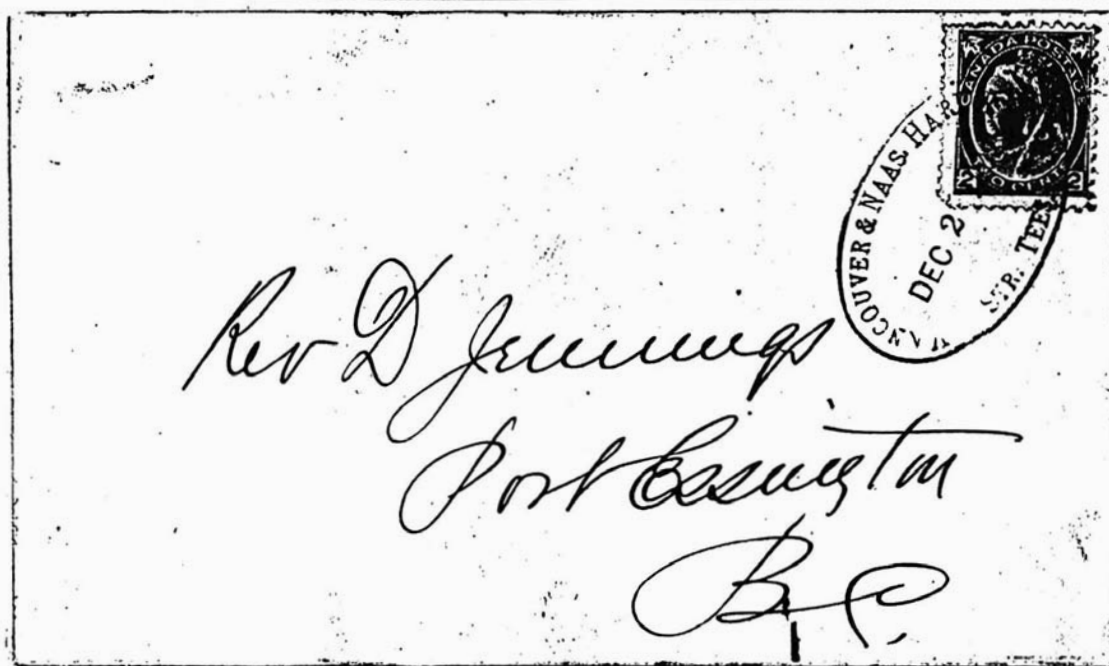 CANADA POSTAGE
2 CENTS 2
VANCOUVER & NAAS HAR
DEC 2
STR. TEES
Rev D Jennings
Port Essington
B.C.